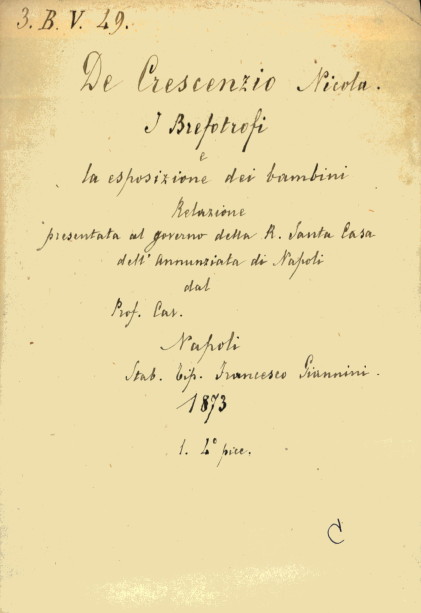 3. B. V. 49.
De Crescenzio Nicola.
I Brefotrofi
e
la esposizione dei bambini
Relazione
presentata al governo della R. Santa Casa
dell'Annunziata di Napoli
dal
Prof. Cav.
Napoli
Stab. Tip. Francesco Giannini.
1873
1. 4° picc.
C